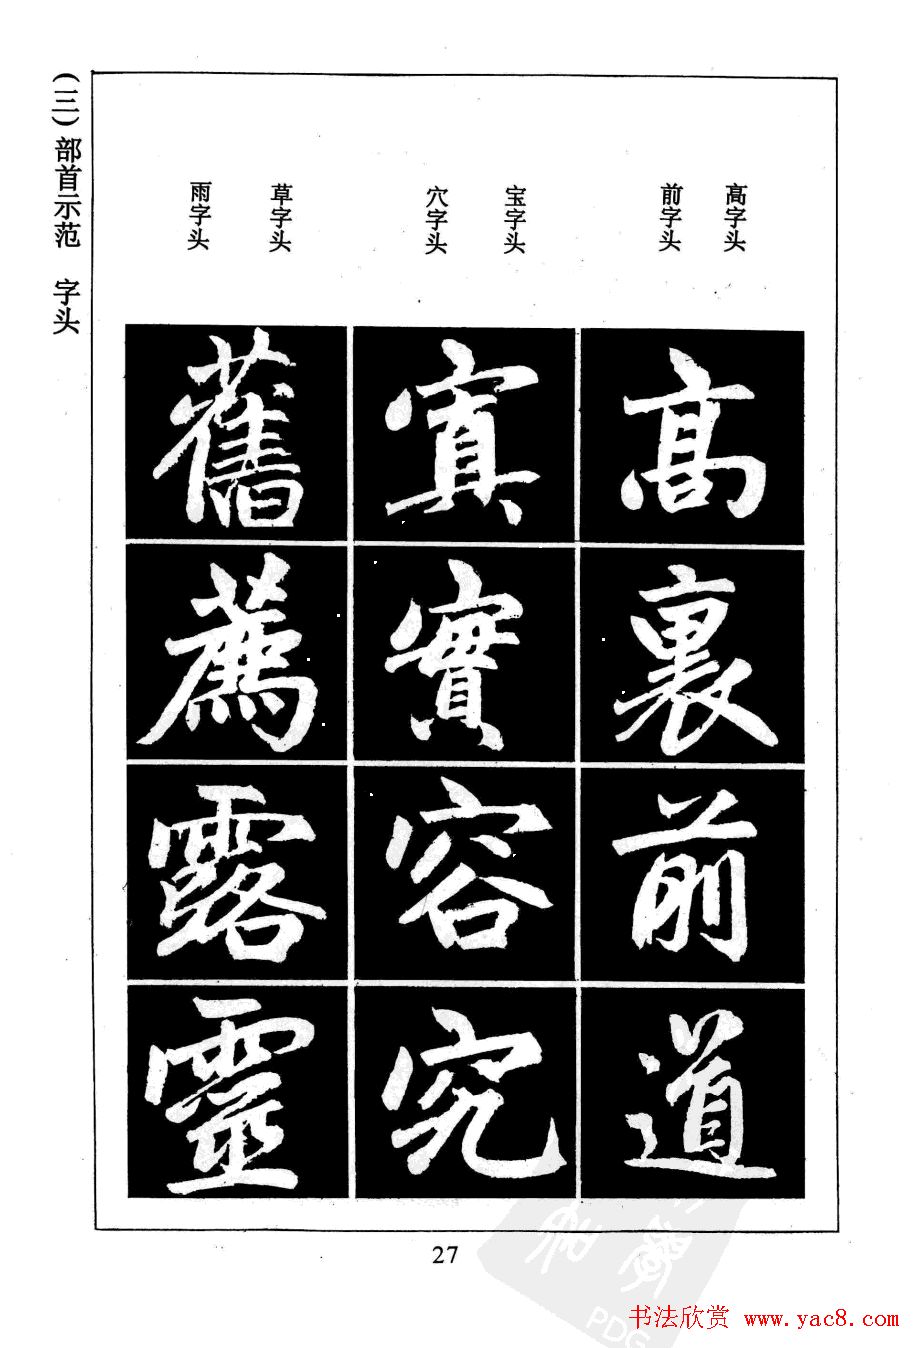 (三)部首示范 字头
高字头
前字头
宝字头
穴字头
草字头
雨字头
高裏前道
實容究
舊薦露靈
27
PDG
书法欣赏 www.yac8.com